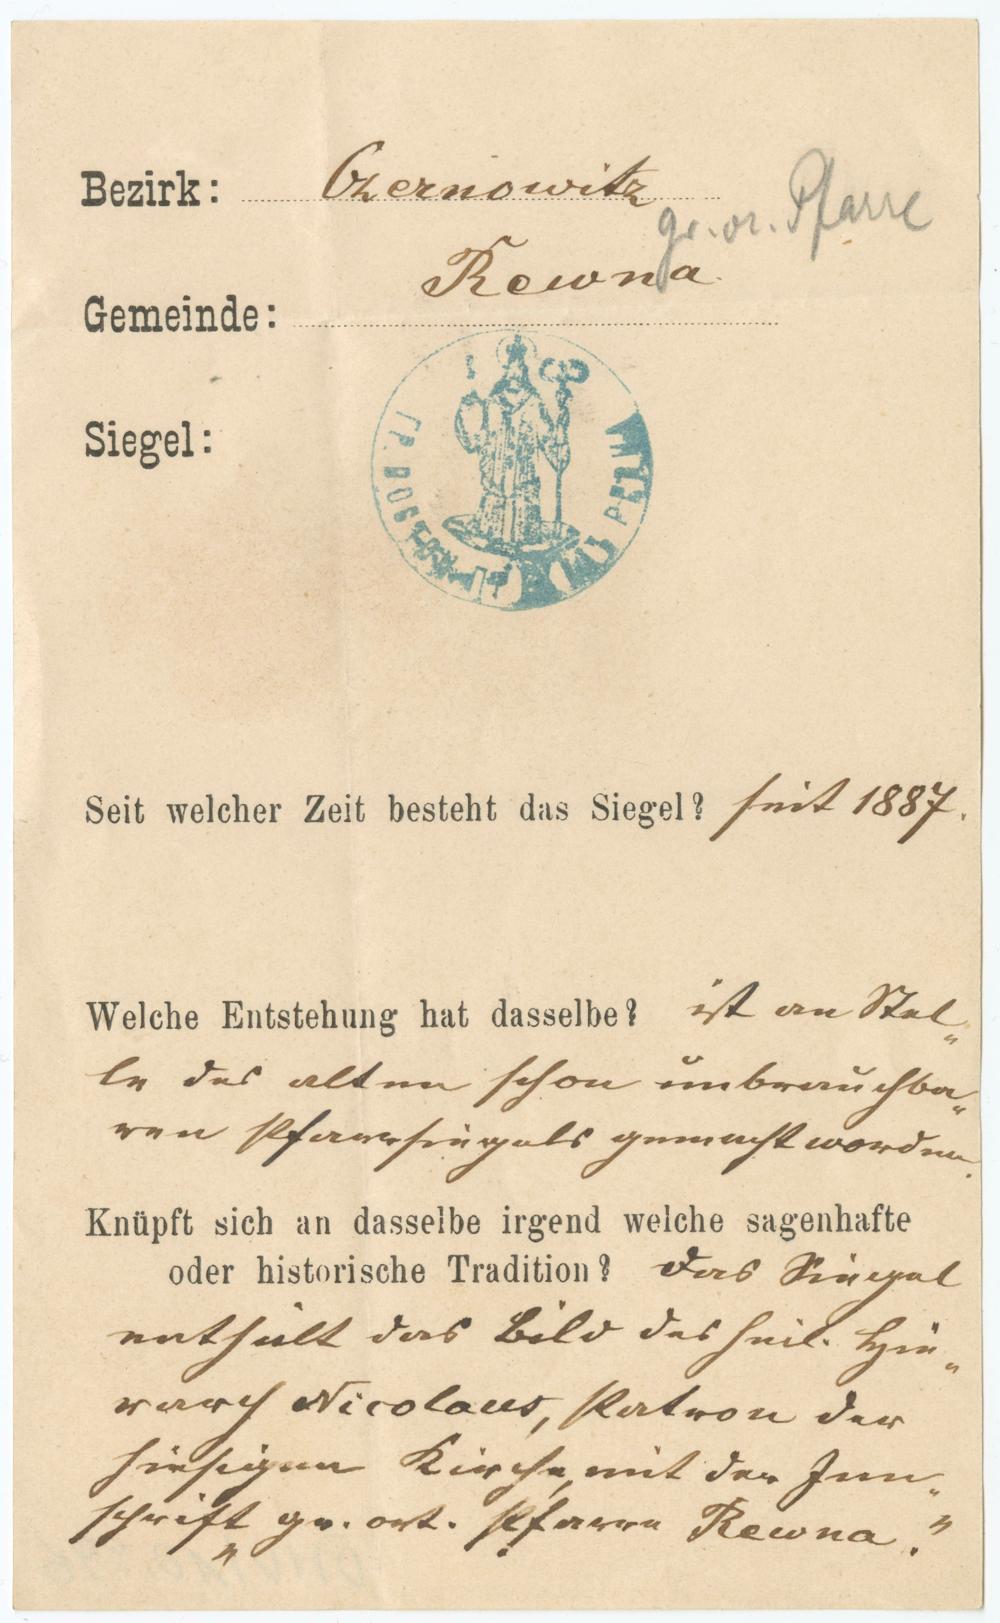 Bezirk: Czernowitz
gr. or. Pfarre
Gemeinde: Rewna
Siegel:
Seit welcher Zeit besteht das Siegel? seit 1887.
Welche Entstehung hat dasselbe? ist an Stel„
le des alten schon unbrauchba„
ren Pfarrsiegels gemacht worden.
Knüpft sich an dasselbe irgend welche sagenhafte
oder historische Tradition? Das Siegel
enthält das Bild des heil. Hie„
rarch Nicolaus, Patron der
hiesigen Kirche, mit der Inn„
schrift „gr. ort. Pfarre Rewna."